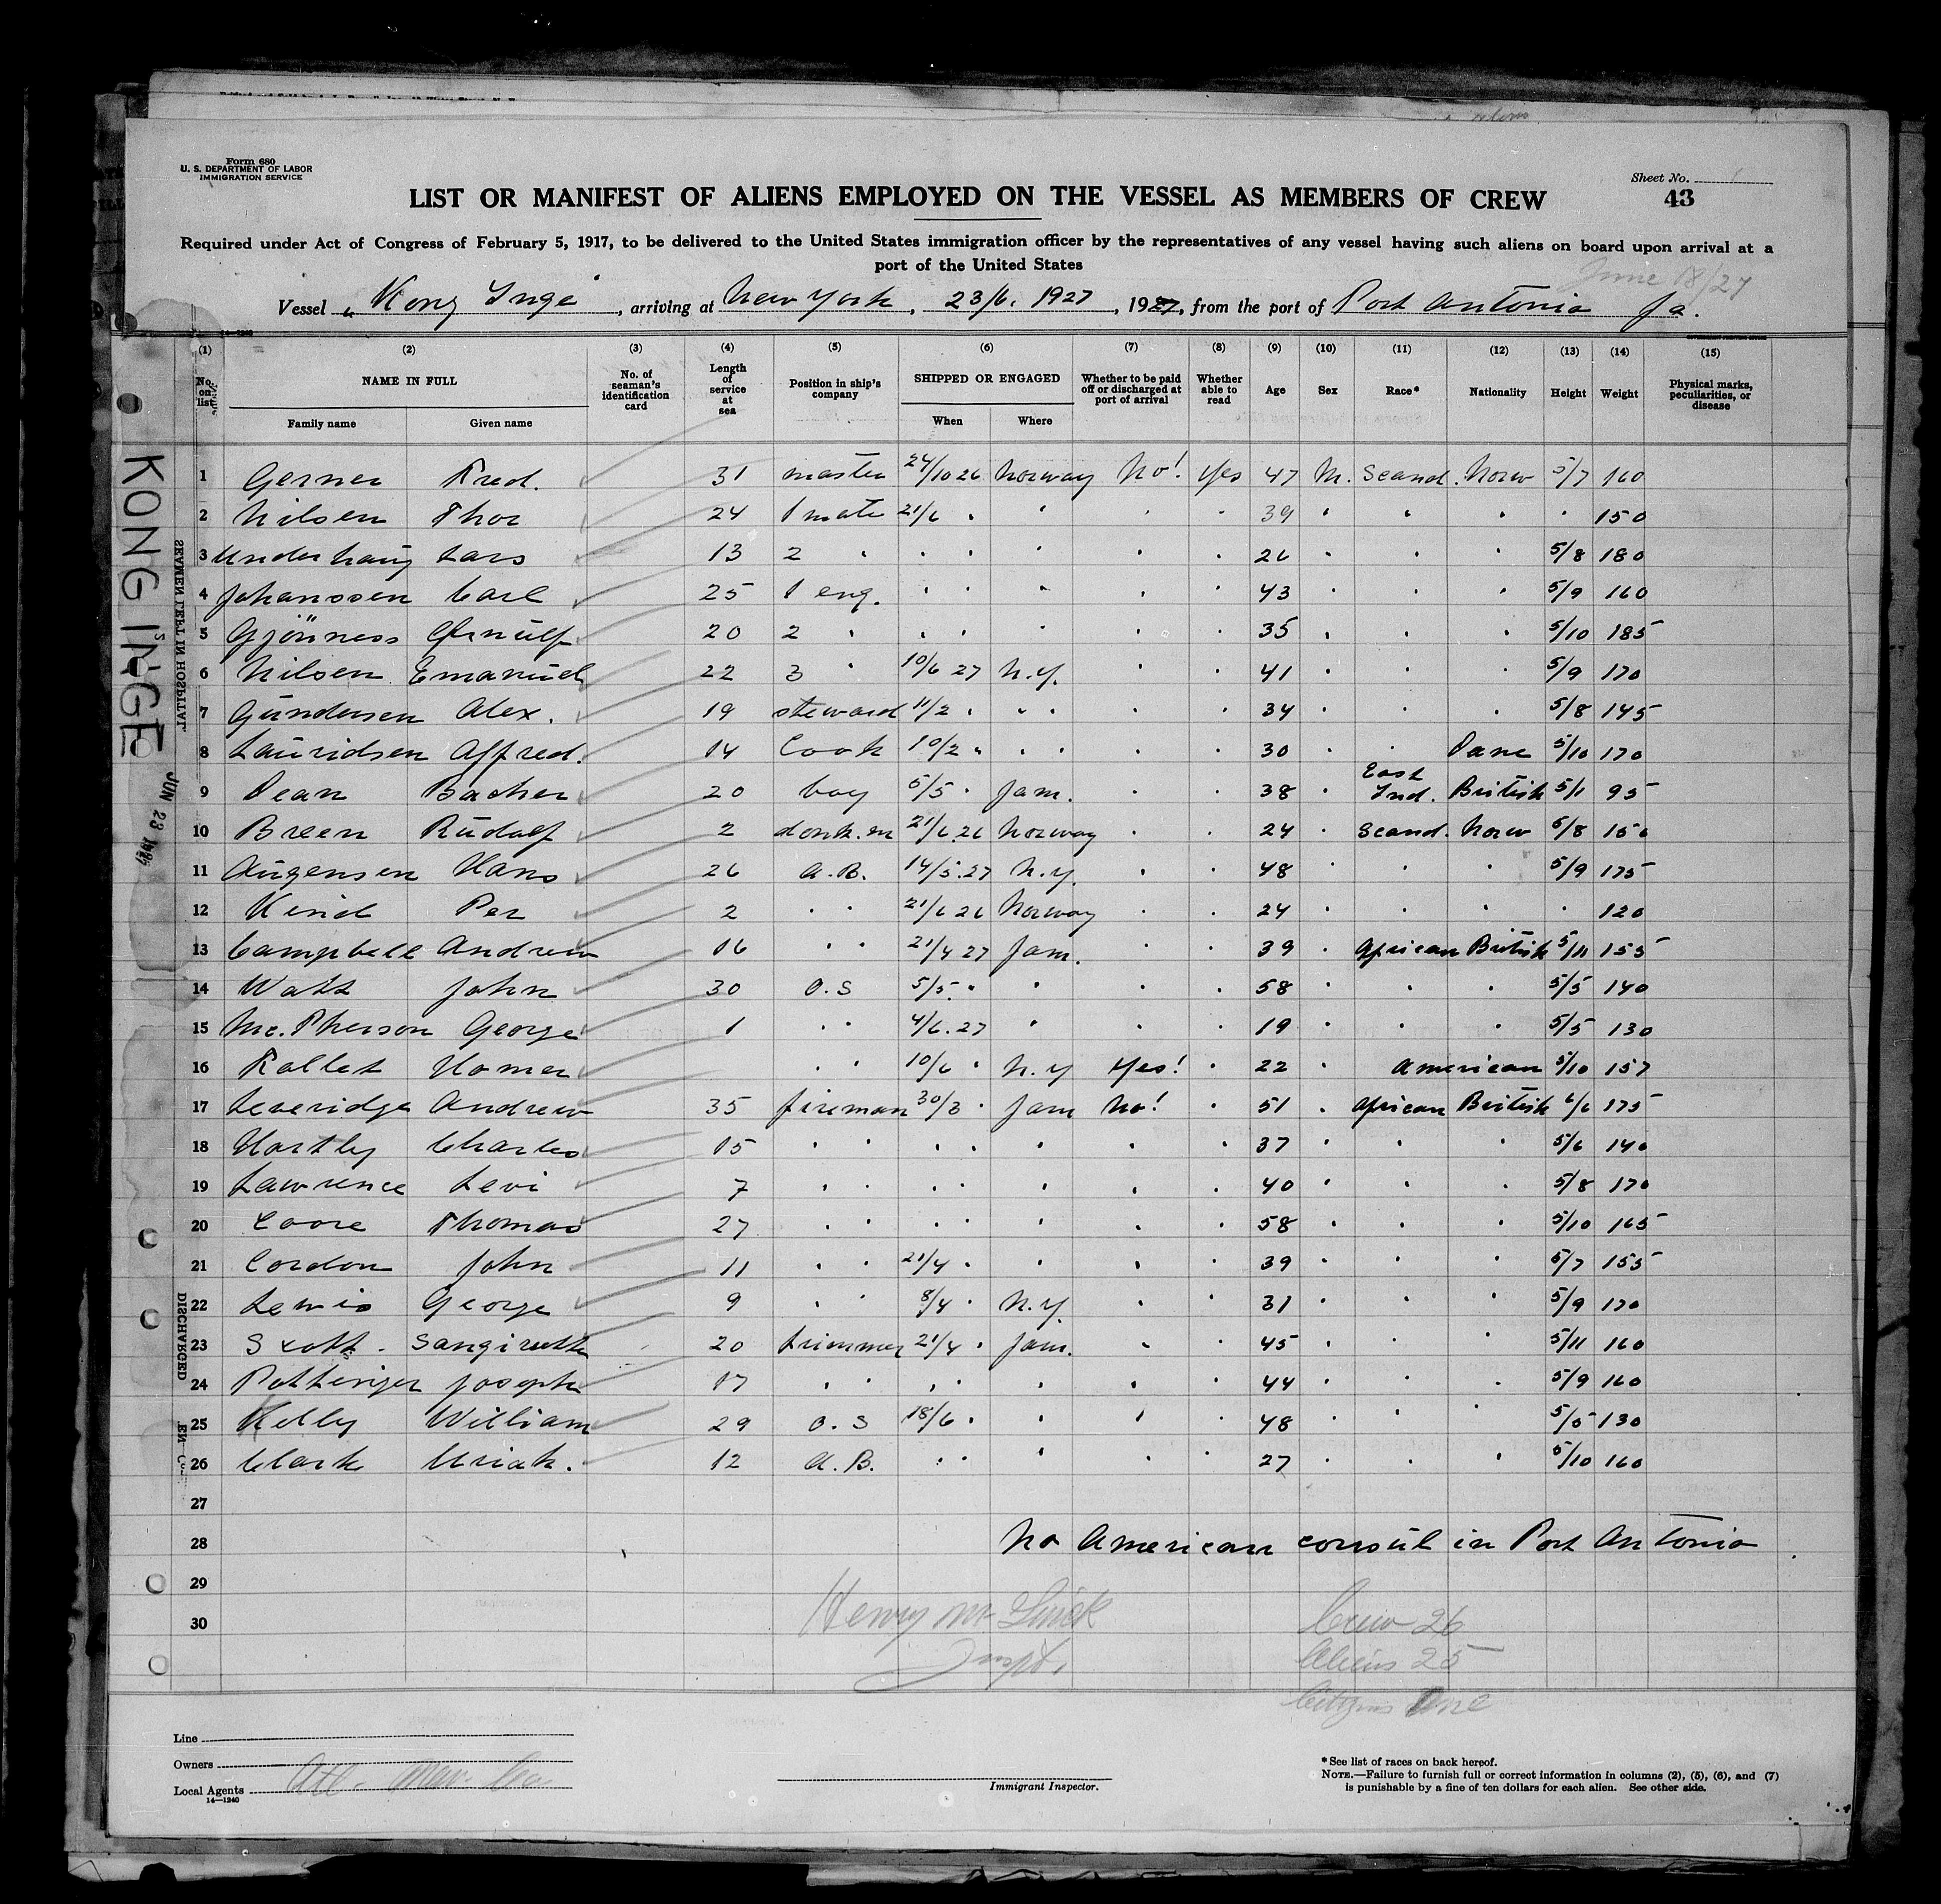 Form 680
U. S. DEPARTMENT OF LABOR
IMMIGRATION SERVICE
Sheet No. 1
43
LIST OR MANIFEST OF ALIENS EMPLOYED ON THE VESSEL AS MEMBERS OF CREW
Required under Act of Congress of February 5, 1917, to be delivered to the United States immigration officer by the representatives of any vessel having such aliens on board upon arrival at a
port of the United States
June 18/27
Vessel "Kong Inge", arriving at New York, 23/6. 1927, 1927, from the port of Port Antonio Ja.
14—1240
(1) (2) (3) (4) (5) (6) (7) (8) (9) (10) (11) (12) (13) (14) (15)
No. on list NAME IN FULL No. of seaman's identification card Length of service at sea Position in ship's company SHIPPED OR ENGAGED Whether to be paid off or discharged at port of arrival Whether able to read Age Sex Race* Nationality Height Weight Physical marks, peculiarities, or disease
Family name Given name When Where
1 Gerner Fred. 31 master 24/10 26 Norway No! Yes 47 M. Scand. Norw 5/7 160
2 Nilsen Thor 24 1 mate 21/6 " " " " 39 " " " " 150
3 Underhaug Lars 13 2 " " " " " " 26 " " " 5/8 180
4 Johanssen Carl 25 1 eng. " " " " " 43 " " " 5/9 160
5 Gjönness Ørnulf 20 2 " " " " " " 35 " " " 5/10 185
6 Nilsen Emanuel 22 3 " 10/6 27 N.Y. " " 41 " " " 5/9 170
7 Gundersen Alex. 19 steward 11/2 " " " " " 34 " " " 5/8 145
8 Lauridsen Alfred. 14 Cook 10/2 " " " " " 30 " " Dane 5/10 170
9 Dean Bacher 20 boy 5/5 " Jam. " " 38 " East Ind. British 5/1 95
10 Breen Rudolf 2 donk.m 21/6 26 Norway " " 24 " Scand. Norw 5/8 150
11 Jürgensen Hans 26 A.B. 14/5.27 N.Y. " " 48 " " " 5/9 175
12 Kind Per 2 " " 21/6 26 Norway " " 24 " " " " 120
13 Campbell Andrew 16 " " 21/4 27 Jam. " " 39 " African British 5/11 155
14 Watt John 30 O.S 5/5. " " " " 58 " " " 5/5 140
15 Mc.Pherson George 1 " " 4/6.27 " " " 19 " " " 5/5 130
16 Kallet Homer " " 10/6 " N.Y Yes! " 22 " American 5/10 157
17 Leveridge Andrew 35 fireman 30/3 " Jam No! " 51 " African British 6/6 175
18 Hartley Charles 15 " " " " " " " 37 " " " 5/6 140
19 Lawrence Levi 7 " " " " " " " 40 " " " 5/8 170
20 Coore Thomas 27 " " " " " " " 58 " " " 5/10 165
21 Cordon John 11 " " 21/4 " " " " 39 " " " 5/7 155
22 Lewis George 9 " " 8/4 " N.Y. " " 31 " " " 5/9 170
23 Sxott. Sangirutt 20 trimmer 21/4 " Jam. " " 45 " " " 5/11 160
24 Pottinger Joseph 17 " " " " " " " 44 " " " 5/9 160
25 Kelly William 29 O.S 18/6 " " " " 48 " " " 5/5 130
26 Clark Uriah. 12 A.B. " " " " " 27 " " " 5/10 160
27
28 No American consul in Port Antonio
29
30
Henry
Inspt.
Crew 26
Aliens 25
Citizens One
Line
Owners
Local Agents
14—1240
Immigrant Inspector.
*See list of races on back hereof.
NOTE.—Failure to furnish full or correct information in columns (2), (5), (6), and (7)
is punishable by a fine of ten dollars for each alien. See other side.
KONG INGE
JUN 23 1927
SEAMEN LEFT IN HOSPITAL
DISCHARGED